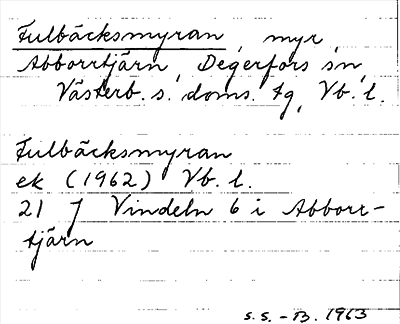 Fulbäcksmyran, myr,
Abborrtjärn, Degerfors sn,
Västerb. s. doms. tg, Vb. l.
Fulbäcksmyran
ek (1962) Vb. l.
21 J Vindeln 6 i Abborr-
tjärn
S.S. - B. 1963